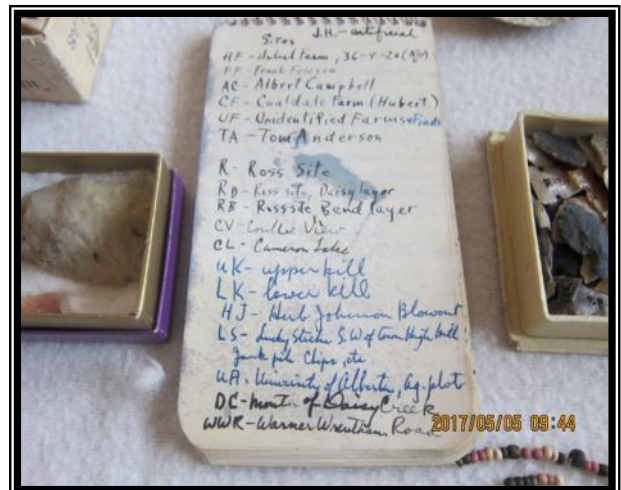 J.H. - artificial
Sites
HF - Hubert Farm, 36-9-20
FF - Frank Frieson
AC - Albert Campbell
CF - Coaldale Farm (Hubert)
UF - Unidentified Farms + Finds
TA - Tom Anderson
R - Ross Site
RD - Ross site, Daisy layer
RB - Ross site Bend layer
CV - Coulee View
CL - Cameron Lake
UK - upper kill
LK - lower kill
HJ - Herb Johnson Blowout
LS - Lucky Strike S.W of town High Hill
Junk pile Chips, etc.
UA - University of Alberta, Ag. plot
DC - Mouth of Daisy Creek
WWR - Warner Wrentham Road
2017/05/05 09:44